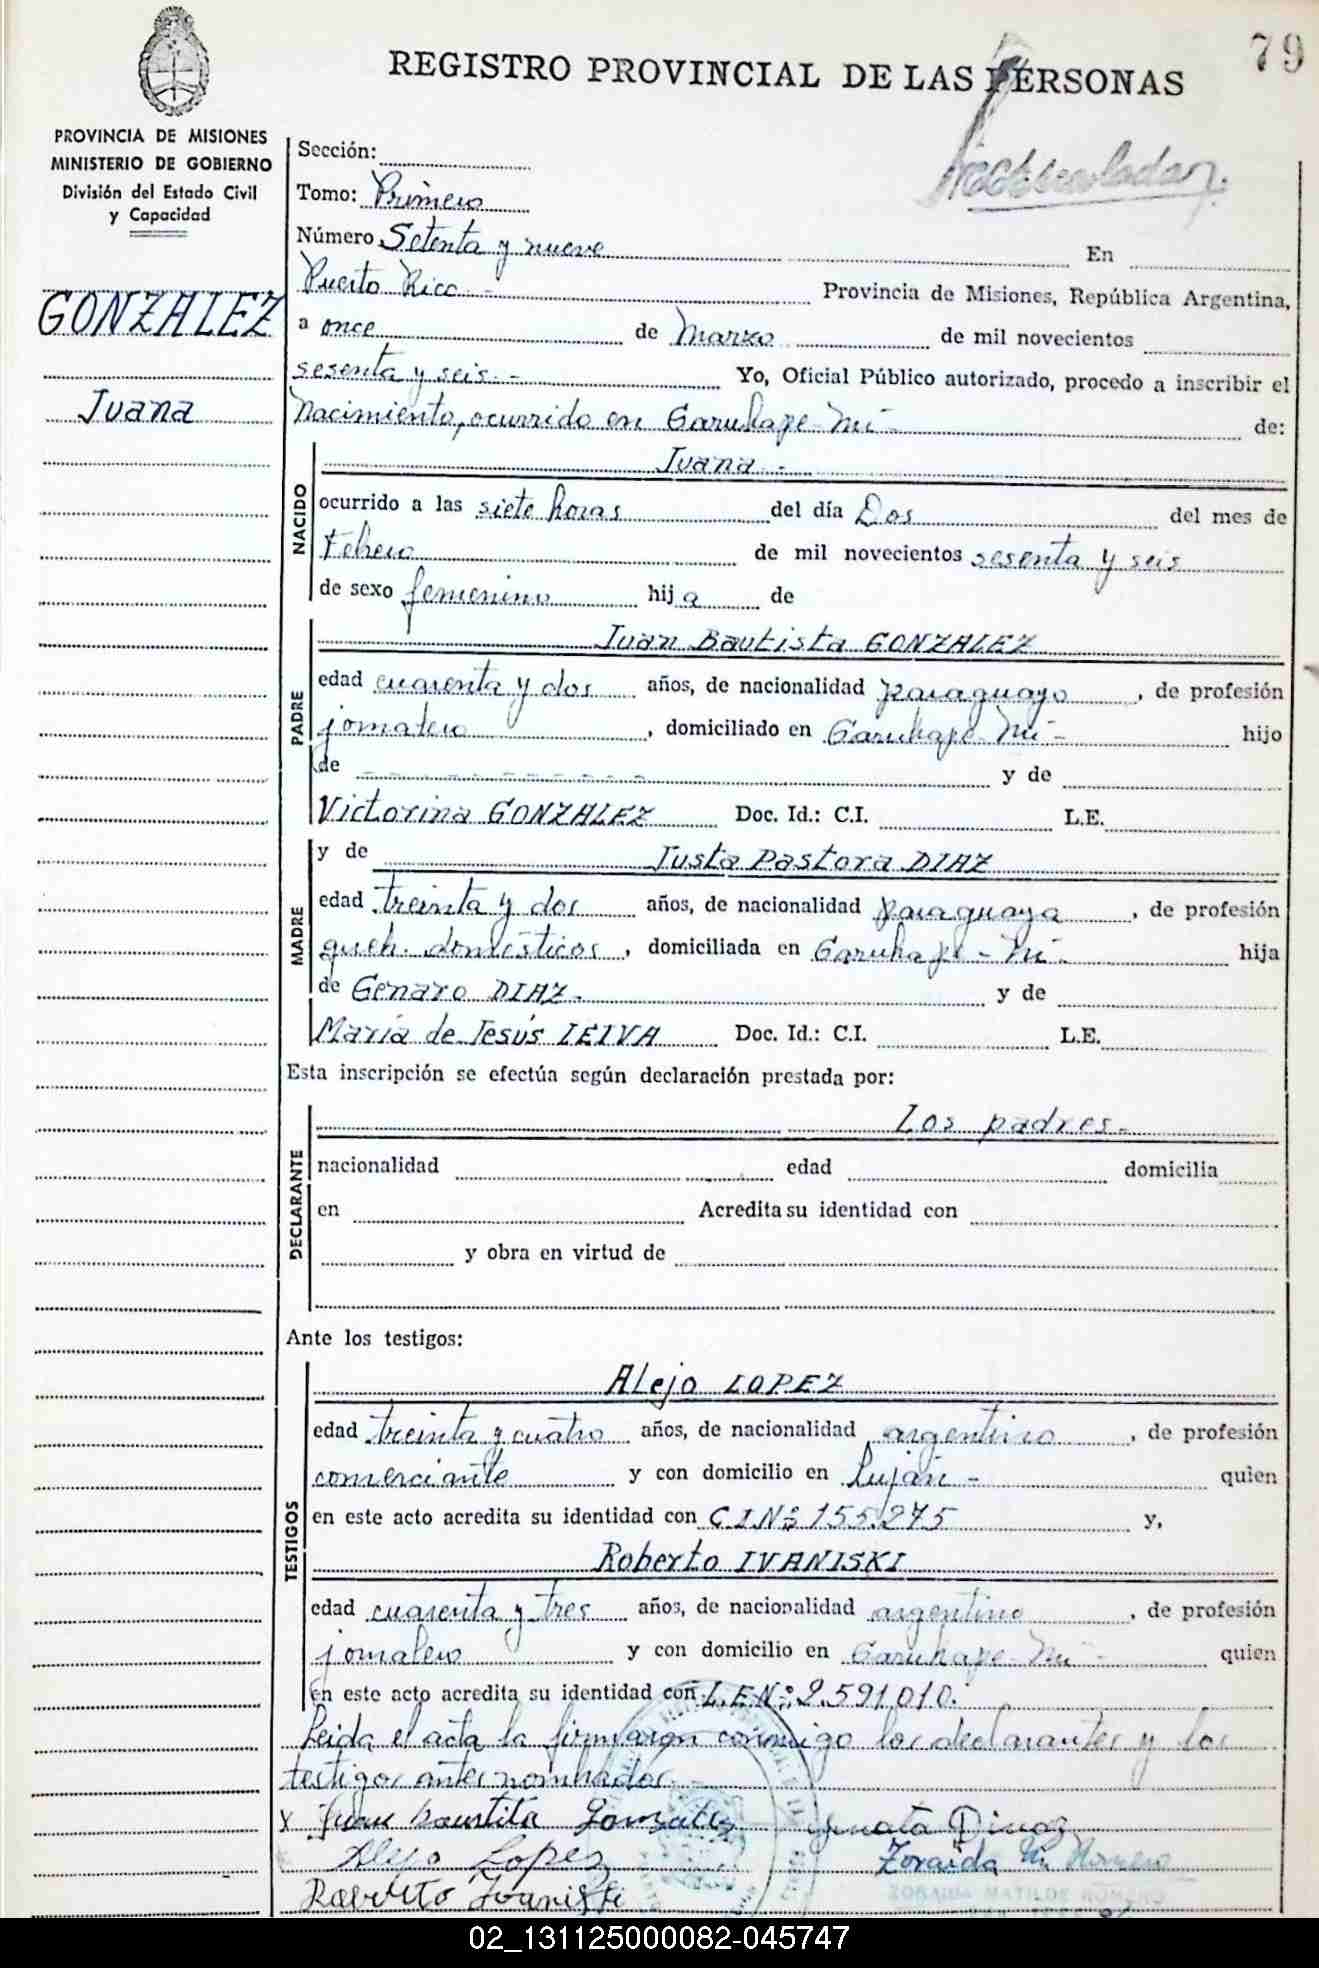 79
REGISTRO PROVINCIAL DE LAS PERSONAS
PROVINCIA DE MISIONES
MINISTERIO DE GOBIERNO
División del Estado Civil
y Capacidad
GONZALEZ
Juana
Sección:
Tomo: Primero
Número Setenta y nueve En
Puerto Rico - Provincia de Misiones, República Argentina,
a once de Marzo de mil novecientos
sesenta y seis.- Yo, Oficial Público autorizado, procedo a inscribir el
Nacimiento, ocurrido en Garuhape-Mí- de:
NACIDO
Juana.-
ocurrido a las siete horas del día Dos del mes de
Febrero de mil novecientos sesenta y seis
de sexo femenino hija de
PADRE
Juan Bautista GONZALEZ
edad cuarenta y dos años, de nacionalidad paraguayo, de profesión
jornalero, domiciliado en Garuhape-Mí- hijo
de - - - - - - - - - - y de
Victorina GONZALEZ Doc. Id.: C.I. L.E.
MADRE
y de Justa Pastora DIAZ
edad treinta y dos años, de nacionalidad paraguaya, de profesión
queh. domésticos, domiciliada en Garuhape-Mí- hija
de Genaro DIAZ.- y de
María de Jesús LEIVA Doc. Id.: C.I. L.E.
Esta inscripción se efectúa según declaración prestada por:
DECLARANTE
Los padres.-
nacionalidad edad domicilia
en Acredita su identidad con
y obra en virtud de
Ante los testigos:
TESTIGOS
Alejo LOPEZ
edad treinta y cuatro años, de nacionalidad argentino, de profesión
comerciante y con domicilio en Luján- quien
en este acto acredita su identidad con C.I.Nº: 155.275 y,
Roberto IVANISKI
edad cuarenta y tres años, de nacionalidad argentino, de profesión
jornalero y con domicilio en Garuhape-Mí- quien
en este acto acredita su identidad con L.E.Nº: 2.591.010.
Leida el acta la firmaron conmigo los declarantes y los
testigos antes nombrados.-
x Juan Bautista Gonzalez
Alejo Lopez Zoraida M. Romero
Roberto Ivaniski ZORAIDA MATILDE ROMERO
02_131125000082-045747